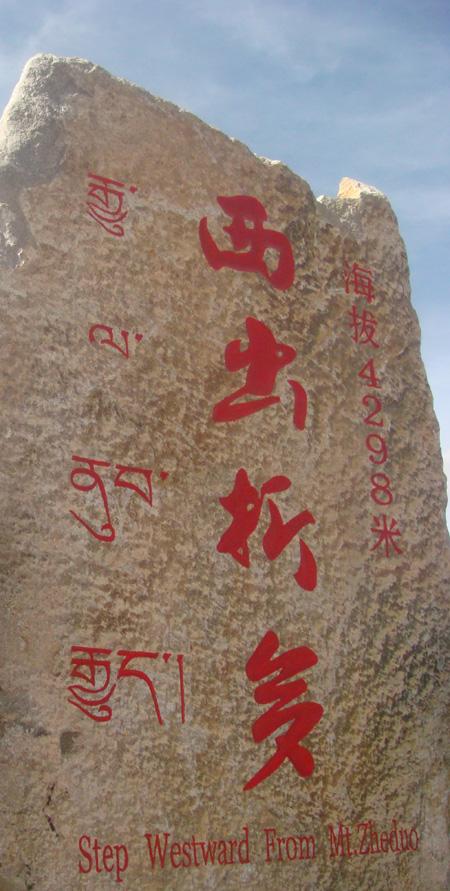 海拔4298米
西出折多
རྒྱ་
ལ་
ནུབ་
རྒྱུད།
Step Westward From Mt.Zheduo